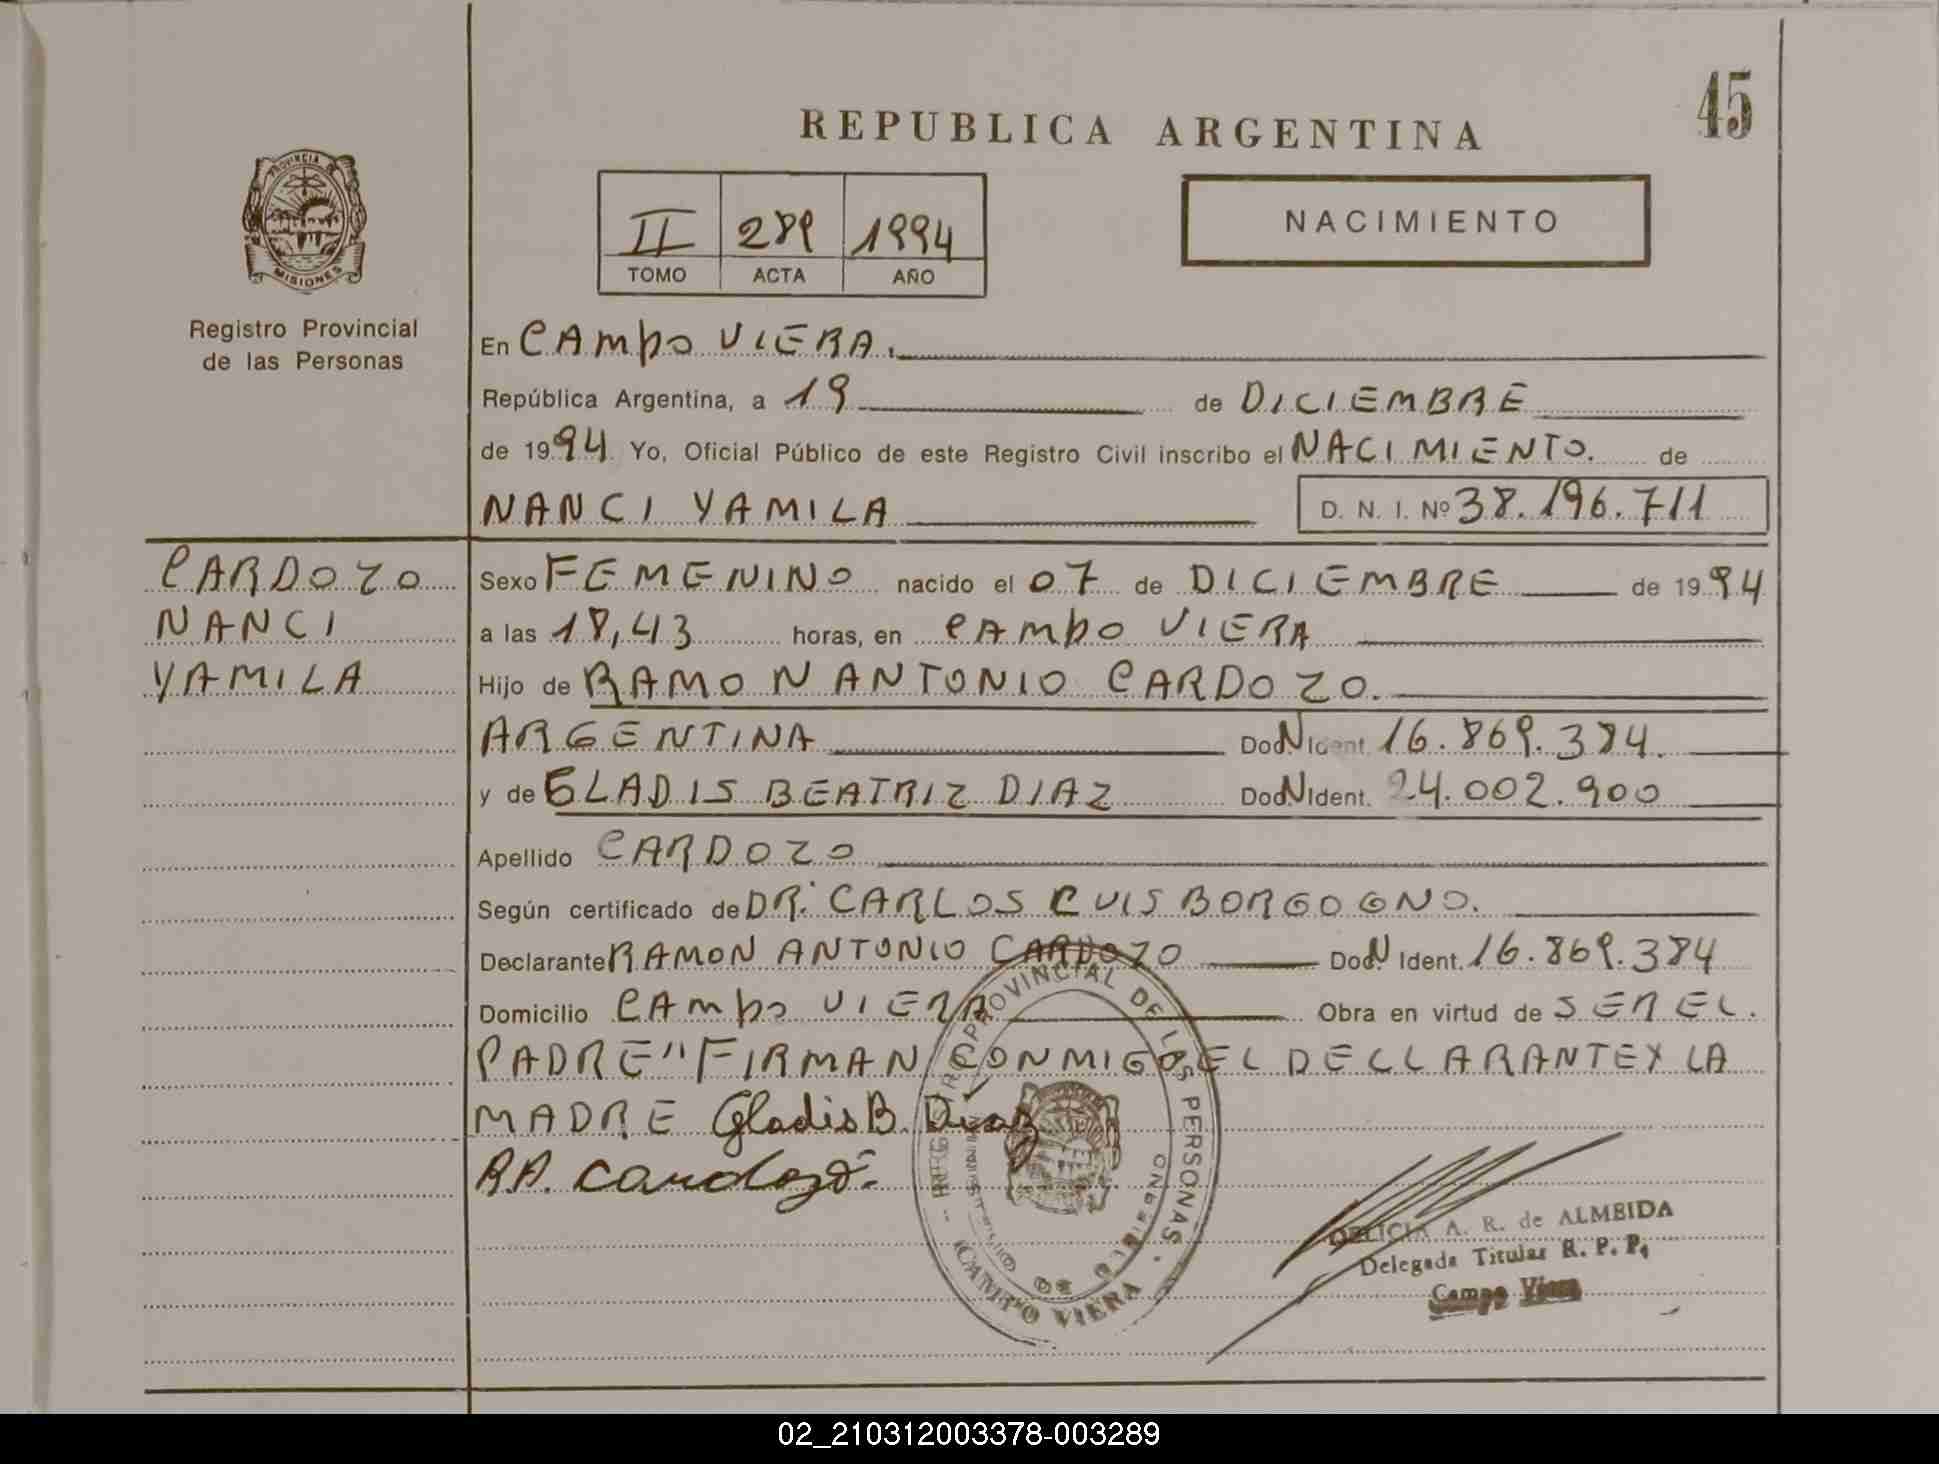 45
REPUBLICA ARGENTINA
PROVINCIA
MISIONES
Registro Provincial
de las Personas
II 289 1994
TOMO ACTA AÑO
NACIMIENTO
En CAMPO VIERA.
República Argentina, a 19 de DICIEMBRE
de 1994 Yo, Oficial Público de este Registro Civil inscribo el NACIMIENTO. de
NANCI YAMILA D. N. I. Nº 38.196.711
CARDOZO
NANCI
YAMILA
Sexo FEMENINO nacido el 07 de DICIEMBRE de 1994
a las 18,43 horas, en CAMPO VIERA
Hijo de RAMON ANTONIO CARDOZO.
ARGENTINA Doc.N Ident. 16.869.384.
y de GLADIS BEATRIZ DIAZ Doc.N Ident. 24.002.900
Apellido CARDOZO
Según certificado de DR. CARLOS LUIS BORGOGNO.
Declarante RAMON ANTONIO CARDOZO Doc.N Ident. 16.869.384
Domicilio CAMPO VIERA Obra en virtud de SER EL.
PADRE" FIRMAN CONMIGO EL DECLLARANTE Y LA
MADRE Gladis B. Diaz
R.A. Cardozo
PROVINCIAL DE LAS PERSONAS
CAMPO VIERA
DELICIA A. R. de ALMEIDA
Delegada Titular R. P. P.
Campo Viera
02_210312003378-003289